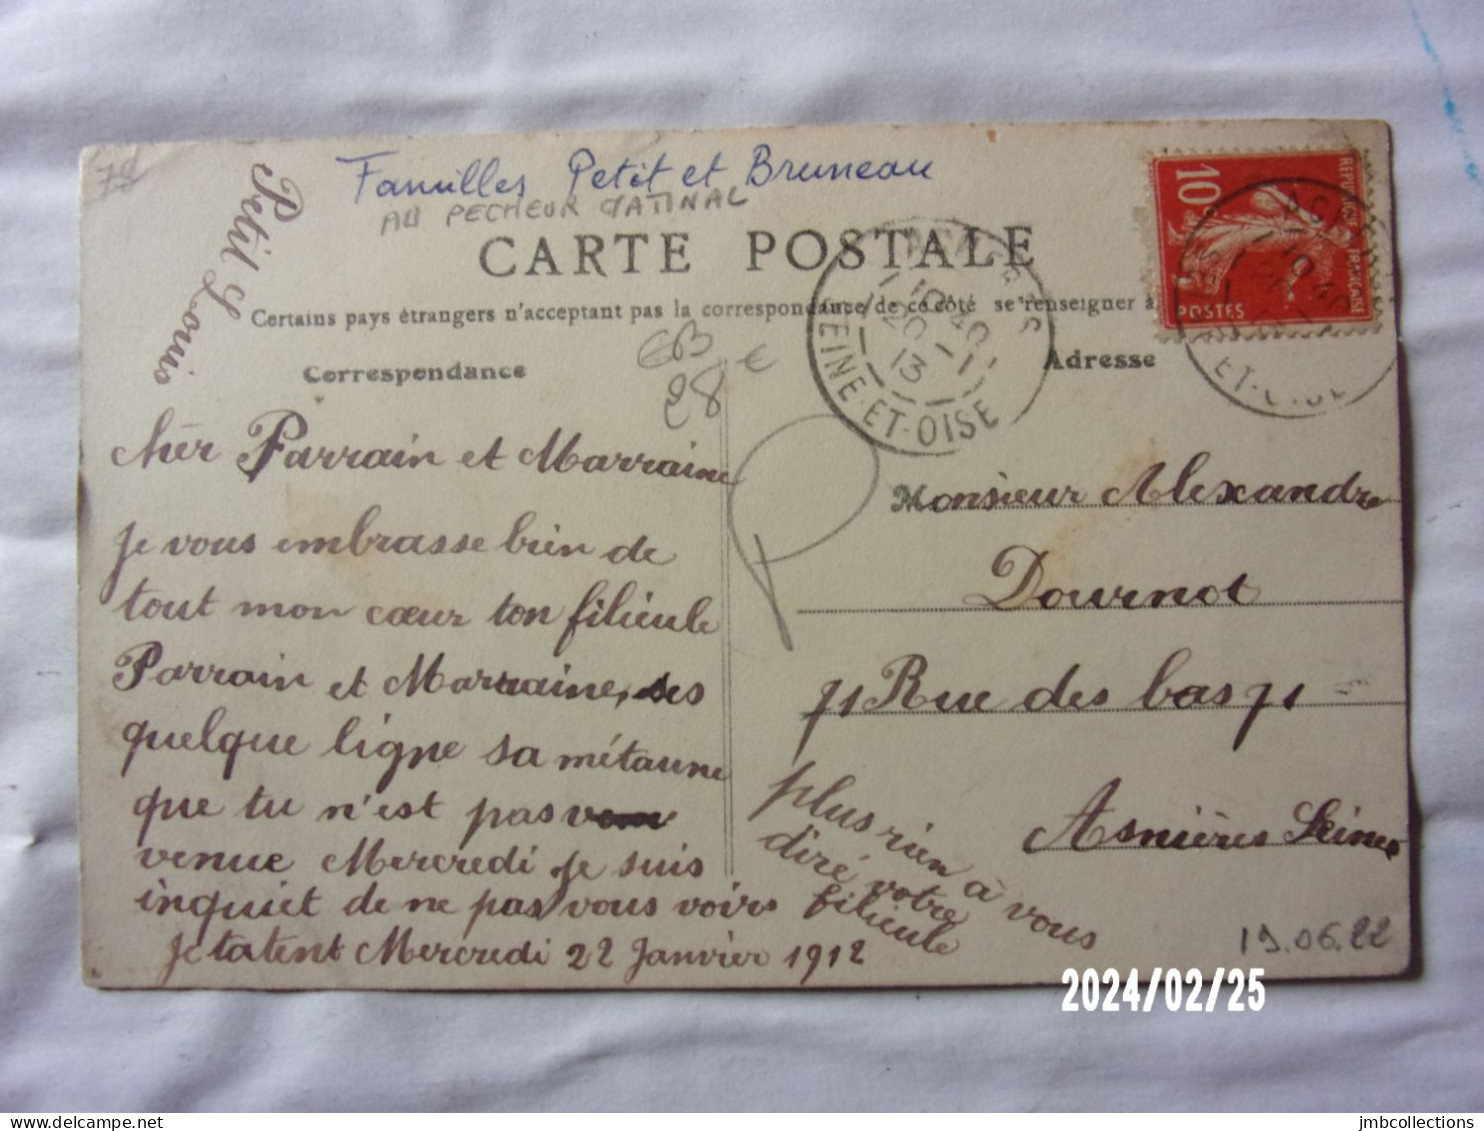 78
Familles Petit et Bruneau
AU PECHEUR MATINAL
Petit Louis
CARTE POSTALE
Certains pays étrangers n'acceptent pas la correspondance de ce côté se renseigner à
Correspondance
Adresse
€
28
10
REPUBLIQUE FRANÇAISE
POSTES
10 40
20 - 1
13
SEINE-ET-OISE
cher Parrain et Marraine
je vous embrasse bien de
tout mon cœur ton filieule
Parrain et Marraine, ses
quelque ligne sa métaune
que tu n'est pas
venue Mercredi je suis
inquiet de ne pas vous voirs
Je tatent Mercredi 22 Janvier 1912
plus rien à vous
diré votre
filieule
Monsieur Alexandre
Dournot
71 Rue des bas 71
Asnières Seine
19.06.22
2024/02/25
jmbcollections